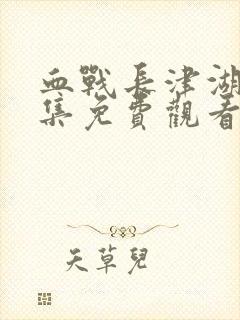 血戰長津湖
集免費觀看
天草兒